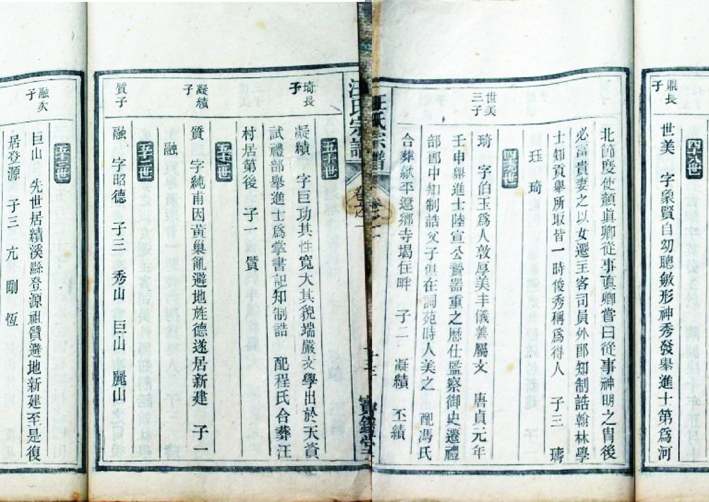 鼎長子
四十八世
世美 字象賢自幼聰敏形神秀發舉進士第為河
北節度使顏真卿從事真卿嘗曰從事神明之胄後
必富貴妻之以女遷主客司員外郎知制誥翰林學
士知貢舉所取皆一時俊秀稱為得人 子三 璹
珏 琦
四十九世
世美三子
琦 字伯玉為人敦厚美丰儀善屬文 唐貞元年
壬申舉進士陸宣公贄器重之歷仕監察御史遷禮
部郎中知制誥父子俱在詞苑時人美之 配馮氏
合葬歙平遼鄉寺塢住畔 子二 凝績 丕績
汪氏宗譜
卷之一
寶錢堂
五十世
琦長子
凝績 字巨功其性寬大其貌端嚴文學出於天資
試禮部舉進士為掌書記知制誥 配程氏合葬汪
村居第後 子一 質
五十一世
凝績子
質 字純甫因黃巢亂避地旌德遂居新建 子一
融
五十二世
質子
融 字昭德 子三 秀山 巨山 麗山
五十三世
融次子
巨山 先世居績溪縣登源祖質避地新建至是復
居登源 子三 亢 剛 恆